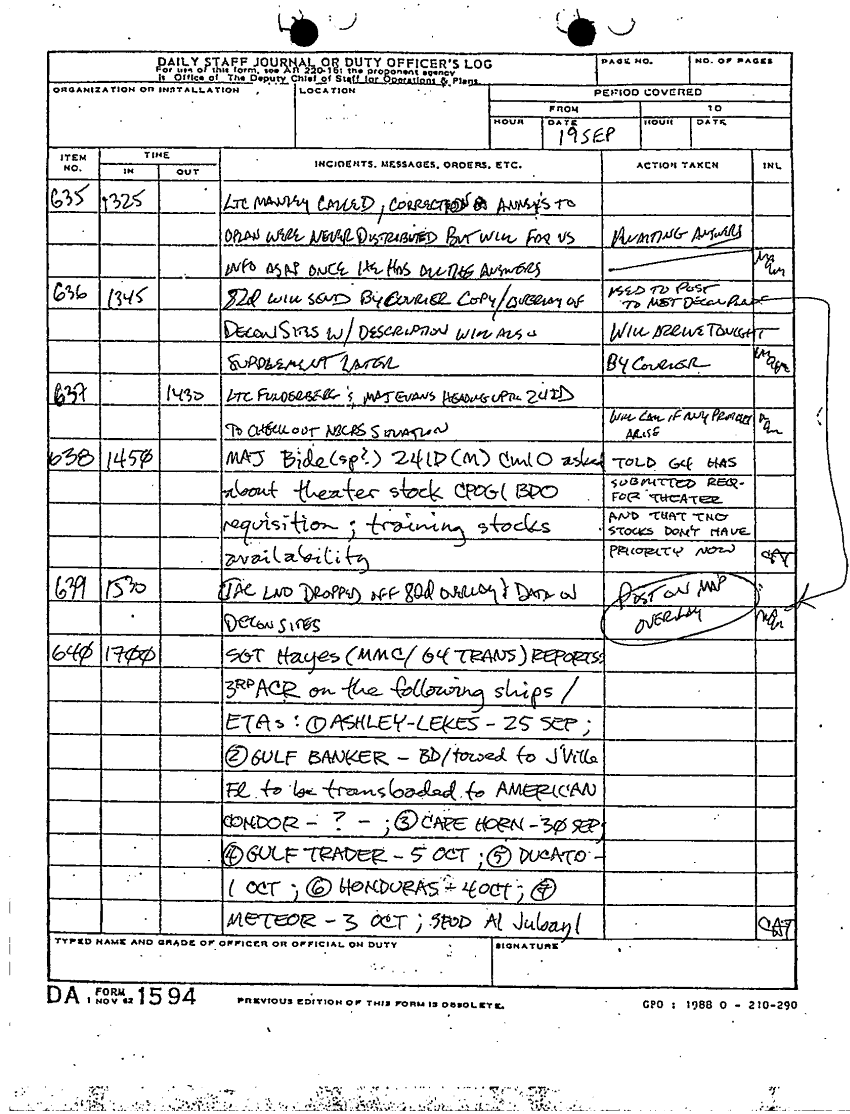 DAILY STAFF JOURNAL OR DUTY OFFICER'S LOG
For use of this form, see AR 220-15; the proponent agency
is Office of The Deputy Chief of Staff for Operations & Plans.
PAGE NO.
NO. OF PAGES
ORGANIZATION OR INSTALLATION
LOCATION
PERIOD COVERED
FROM
TO
HOUR
DATE
HOUR
DATE
19 SEP
ITEM NO.
TIME
IN
OUT
INCIDENTS, MESSAGES, ORDERS, ETC.
ACTION TAKEN
INL
635 1325 LTC MANLEY CALLED, CORRECTED ANNEXS TO
OPLAN WERE NEVER DISTRIBUTED BUT WILL FOR US AWAITING ANSWERS
INFO ASAP ONCE HE HAS ALL THE ANSWERS
636 1345 82d WILL SEND BY COURIER COPY/OVERLAY OF USED TO POST
TO MET DECON
DECON SITES W/ DESCRIPTION WILL ALSO WILL ARRIVE TONIGHT
SUPPLEMENT LATER BY COURIER
637 1430 LTC FUNDERBERG & MAJ EVANS HEADING UP TO 24ID
TO CHECK OUT NBCRS SITUATION WILL CALL IF ANY PROBLEMS
ARISE
638 1450 MAJ Bide(sp?) 24ID(M) CmlO asked TOLD G4 HAS
about theater stock CPOG/BDO SUBMITTED REQ.
FOR THEATER
requisition; training stocks AND THAT TNG
STOCKS DON'T HAVE
availability PRIORITY NOW CAY
639 1530 TAC LNO DROPPED OFF 82d OVERLAY & DATA ON POST ON MAP
DECON SITES OVERLAY
640 1700 SGT Hayes (MMC/G4 TRANS) REPORTS:
3RD ACR on the following ships/
ETAs: ① ASHLEY-LEKES - 25 SEP;
② GULF BANKER - BD/towed to J'Ville
Fl to be transloaded to AMERICAN
CONDOR - ? - ; ③ CAPE HORN - 30 SEP;
④ GULF TRADER - 5 OCT; ⑤ DUCATO -
1 OCT; ⑥ HONDURAS - 4 OCT; ⑦
METEOR - 3 OCT; SPOD Al Jubayl CAY
TYPED NAME AND GRADE OF OFFICER OR OFFICIAL ON DUTY
SIGNATURE
DA FORM 1 NOV 62 1594
PREVIOUS EDITION OF THIS FORM IS OBSOLETE.
GPO : 1988 O - 210-290